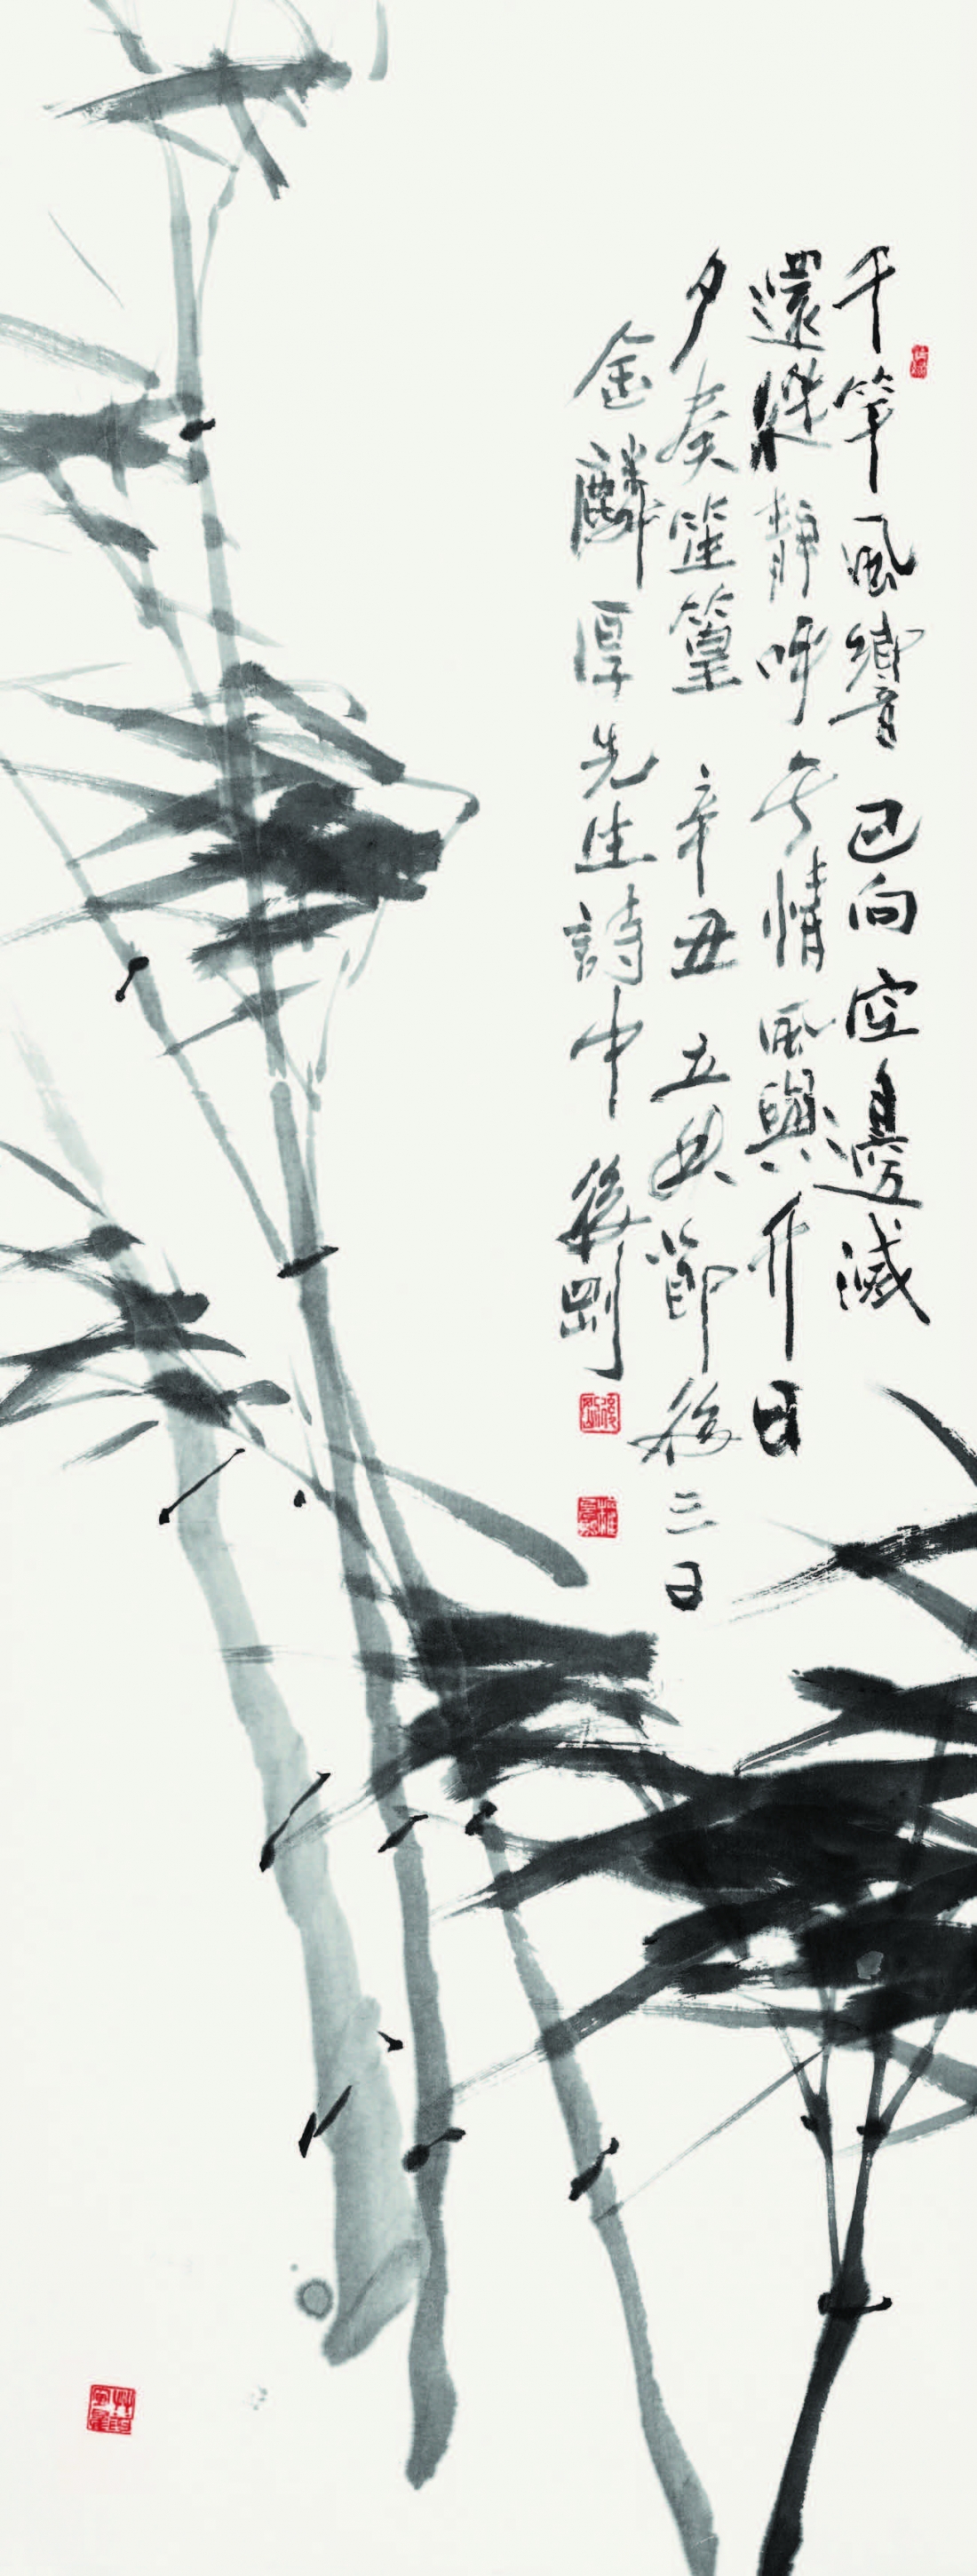 千竿風響已向空邊滅
還從靜呼无情風與竹日
夕奏笙篁辛丑立節後三日
金麟厚先生詩中後剛